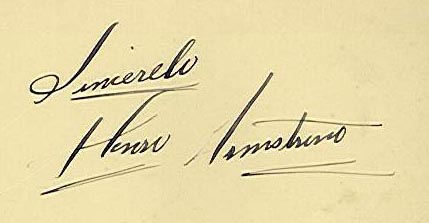 Sincerely
Henry Armstrong